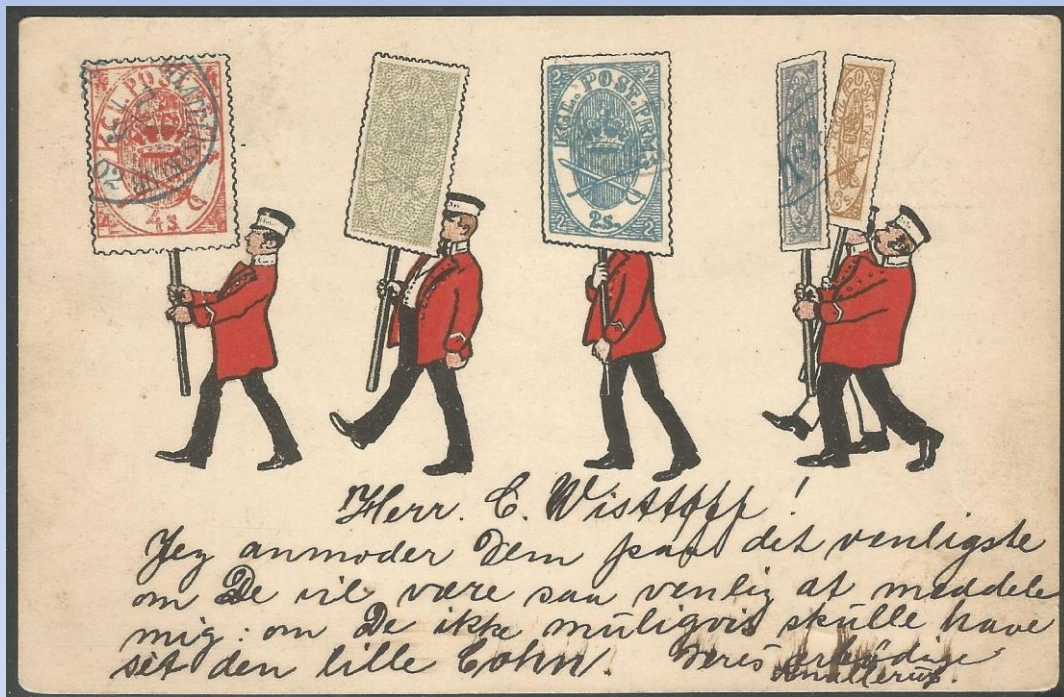 KGL. POST
4 s.
KGL. POST FRM
2 2 2 2
2 s.
Herr. C. Wisttoff!
Jeg anmoder Dem paa det venligste
om De vil være saa venlig at meddele
mig: om De ikke muligvis skulle have
set den lille Cohn. Deres ærbødige
Knallerup.